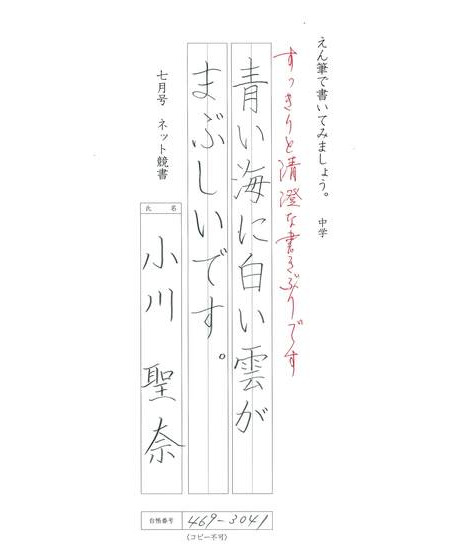 えん筆で書いてみましょう。 中学
すっきりと清澄な書きぶりです
青い海に白い雲が
まぶしいです。
七月号 ネット競書
氏 名
小川 聖奈
台帳番号 469-3041
(コピー不可)